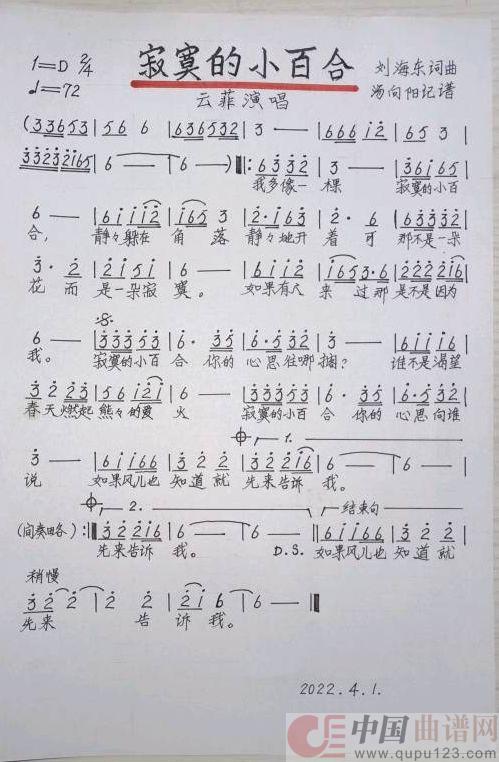 寂寞的小百合
1=D 2/4
刘海东词曲
♩=72
云菲演唱
汤向阳记谱
(33653|56 6|636532|3 —|666 12|65 3|
332321165|6 —|6 —):‖:6332|3 —|3616 5|
我多像一 棵 寂寞的小百
6 —|61112|165 3|2·163|2· 6|63332|
合, 静々躲在 角 落 静々地开 着 可 那不是一朵
3· 2|2151|6 —|6112|1653·6|222216|
花 而 是一朵寂 寞。 如果有人 来 过那 是不是因为
6 —|333353|6· 35|6·165|3 —|66123|
我。 寂寞的小百 合 你的 心思往哪搁? 谁不是渴望
春天燃起 熊々的爱 火 寂寞的小百 合 你的 心思向谁
1.
3 —|61166|3 2 2|32216|6 —|6 —|
说 如果风儿也 知道就 先来告诉 我。
2.
结束句
(间奏略):‖32216|6 —|6 —‖61166|3 2 2|
先来告诉 我。 D.S. 如果风儿也 知道就
稍慢
3 2 2|2 2 2|2 1 6|6 —‖
先来 告 诉 我。
2022.4.1.
中国曲谱网
www.qupu123.com